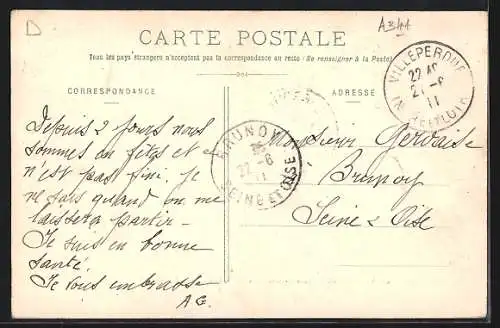 D
A344
CARTE POSTALE
Tous les pays étrangers n'acceptent pas la correspondance au recto (Se renseigner à la Poste)
CORRESPONDANCE
ADRESSE
VILLEPERDUE
22 45
21 - 6
11
INDRE-ET-LOIRE
BRUNOY
22 - 6
11
SEINE ET OISE
Depuis 2 jours nous
sommes en fêtes et ce
n'est pas fini. je
ne sais quand on me
laissera partir -
Je suis en bonne
santé.
Je vous embrasse
A G.
Monsieur Gervaise
Brunoy
Seine & Oise